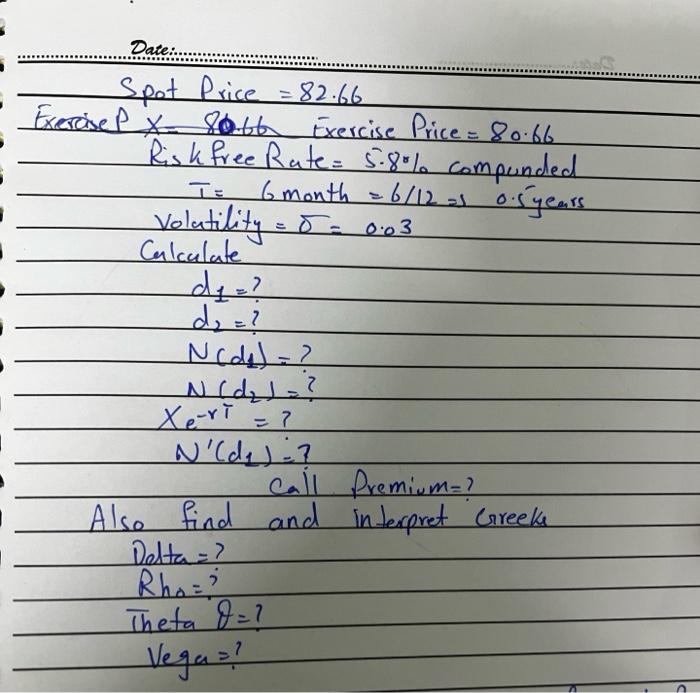 Date:
Spot Price = 82.66
Exercise P X = 80.66 Exercise Price = 80.66
Risk free Rate = 5.8% compunded
T = 6 month = 6/12 => 0.5 years
Volatility = σ = 0.03
Calculate
d1 = ?
d2 = ?
N(d1) = ?
N(d2) = ?
Xe-rT = ?
N'(d1) = ?
Call Premium = ?
Also find and interpret Greeks
Delta = ?
Rho = ?
Theta θ = ?
Vega = ?